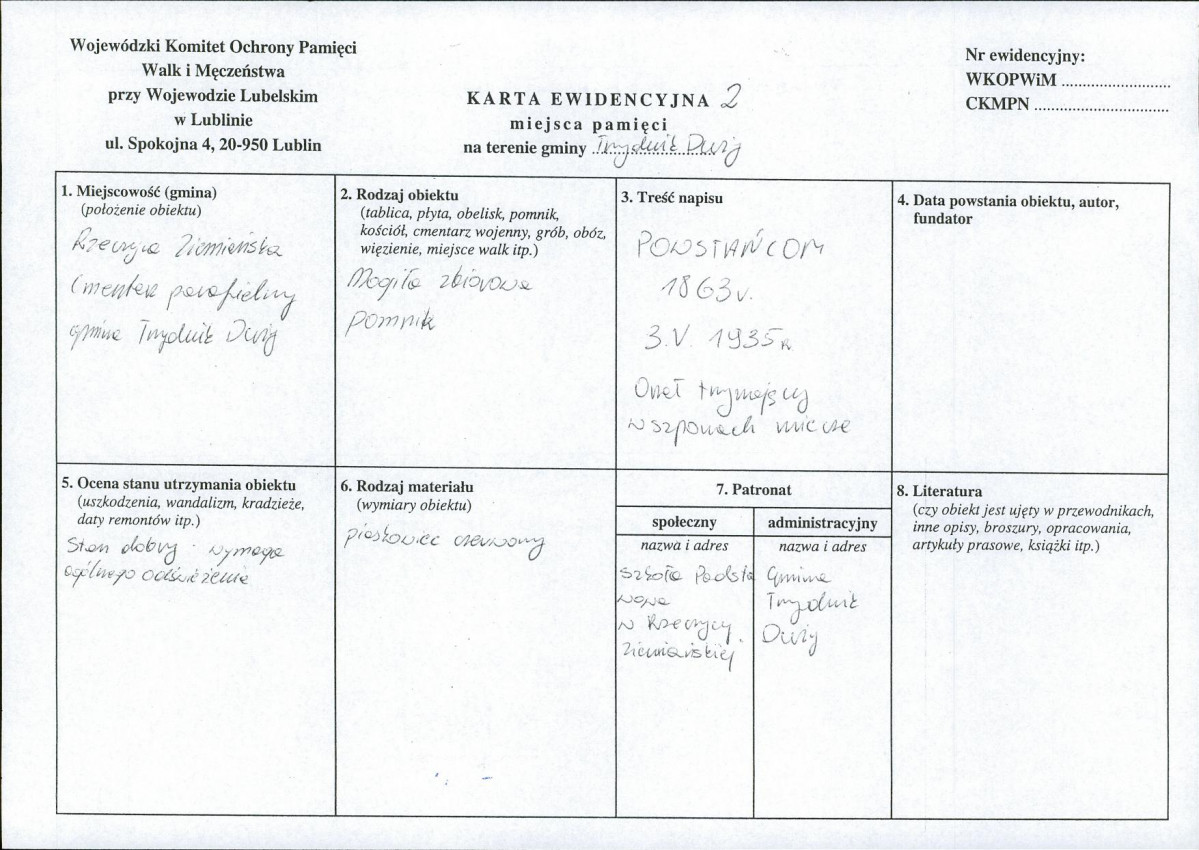 Wojewódzki Komitet Ochrony Pamięci
Walk i Męczeństwa
przy Wojewodzie Lubelskim
w Lublinie
ul. Spokojna 4, 20-950 Lublin
KARTA EWIDENCYJNA 2
miejsca pamięci
na terenie gminy Trzydnik Duży
Nr ewidencyjny:
WKOPWiM ............................
CKMPN ..................................
1. Miejscowość (gmina)
(położenie obiektu)
Rzeczyca Ziemiańska
Cmentarz parafialny
gmina Trzydnik Duży
2. Rodzaj obiektu
(tablica, płyta, obelisk, pomnik,
kościół, cmentarz wojenny, grób, obóz,
więzienie, miejsce walk itp.)
Mogiła zbiorowa
pomnik
3. Treść napisu
POWSTAŃCOM
1863 r.
3.V. 1935 R
Orzeł trzymający
w szponach miecze
4. Data powstania obiektu, autor,
fundator
5. Ocena stanu utrzymania obiektu
(uszkodzenia, wandalizm, kradzieże,
daty remontów itp.)
Stan dobry. wymaga
ogólnego odświeżenia
6. Rodzaj materiału
(wymiary obiektu)
piaskowiec czerwony
7. Patronat
społeczny
nazwa i adres
Szkoła Podsta
wowa
w Rzeczycy
Ziemiańskiej
administracyjny
nazwa i adres
Gmina
Trzydnik
Duży
8. Literatura
(czy obiekt jest ujęty w przewodnikach,
inne opisy, broszury, opracowania,
artykuły prasowe, książki itp.)